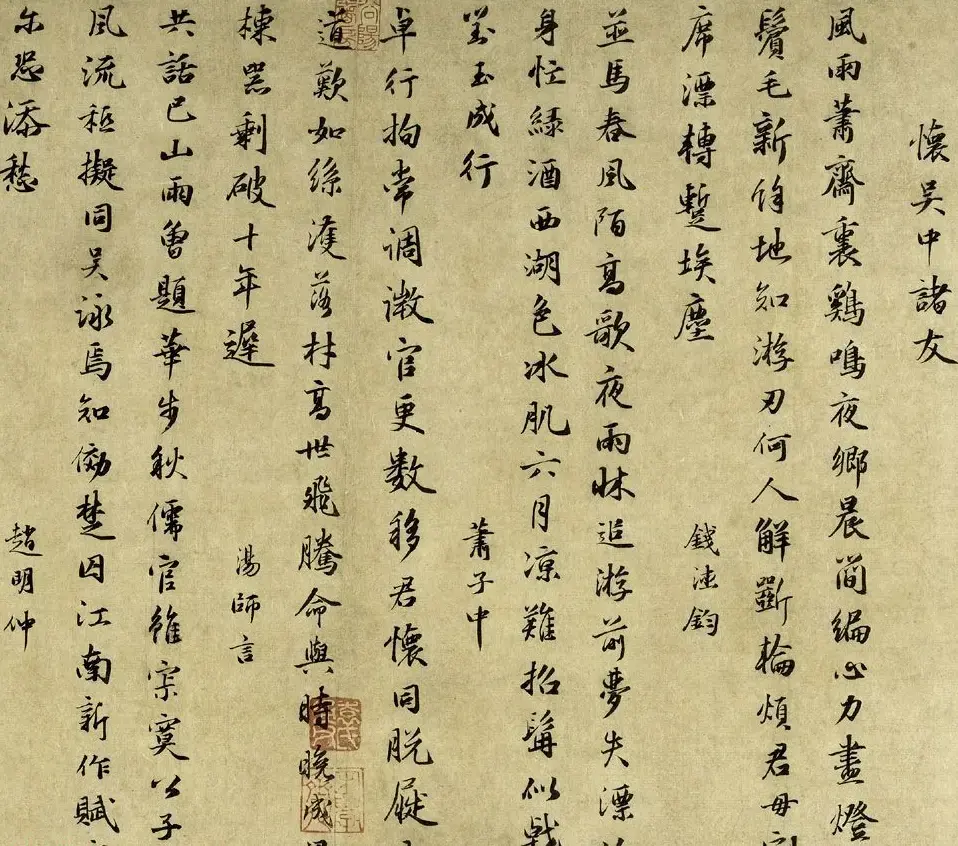 懷吳中諸友
風雨蕭齋裏鷄鳴夜鄉晨簡編心力盡燈
鬢毛新餘地知游刃何人解斲輪煩君毋
席漂轉蹔埃塵
錢德鈞
並馬春風陌高歌夜雨牀追游前夢失漂
身忙綠酒西湖色冰肌六月凉難招髯似戟
玉成行
蕭子中
卓行拘常調微官更數移君懷同脫屣
道歎如絲濩落材高世飛騰命與時晚成
棟器剩破十年遲
湯師言
共話巴山雨曾題華步秋儒官雖寂寞公子
風流極擬同吳詠焉知効楚囚江南新作賦
尔恐添愁
趙明仲